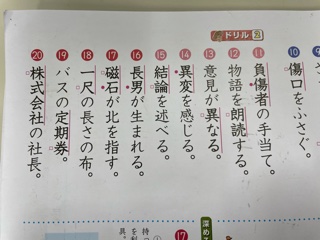 ドリル 2
⑩ 傷口をふさぐ。
⑪ 負傷者の手当て。
⑫ 物語を朗読する。
⑬ 意見が異なる。
⑭ 異変を感じる。
⑮ 結論を述べる。
⑯ 長男が生まれる。
⑰ 磁石が北を指す。
⑱ 一尺の長さの布。
⑲ バスの定期券。
⑳ 株式会社の社長。
深め
⑰
①
持つ
を利
具。